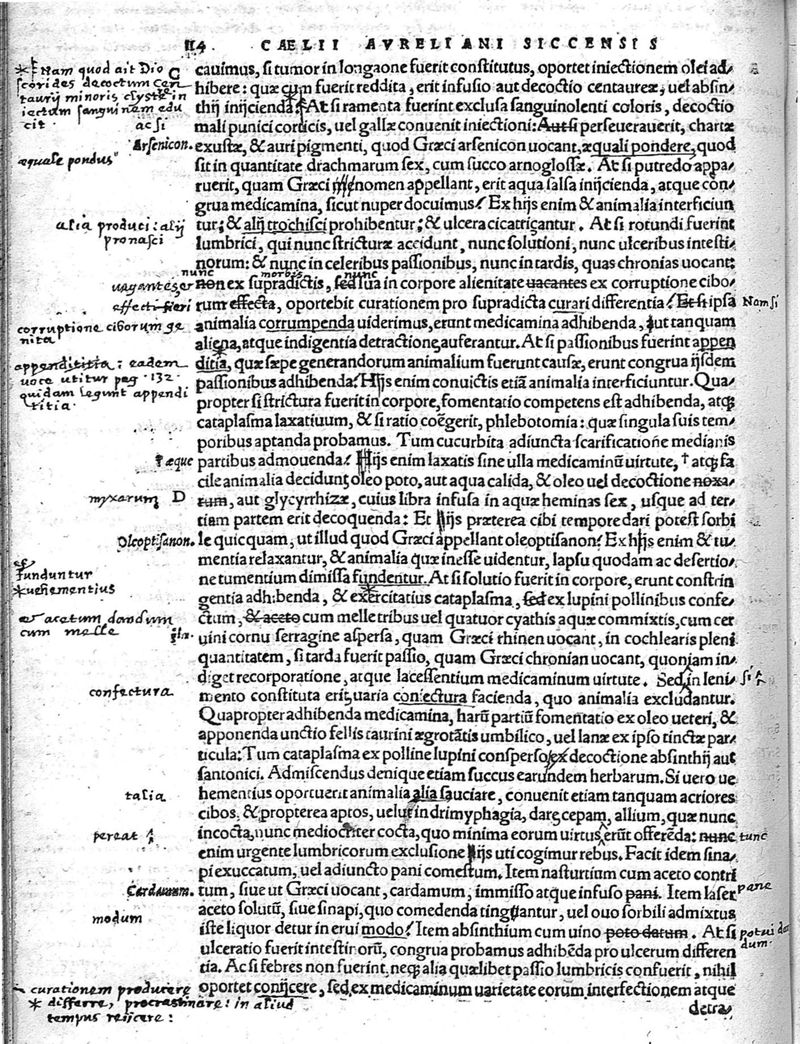 114. CAELII AVRELIANI SICCENSIS
cauimus, si tumor in longaone fuerit constitutus, oportet iniectionem olei ad-
hibere: quæ cum fuerit reddita, erit infusio aut decoctio centaureæ, uel absin-
thij inijcienda. At si ramenta fuerint exclusa sanguinolenti coloris, decoctio
mali punici corticis, uel gallæ conuenit iniectioni: Aut si perseuerauerit, chartæ
exustæ, & auri pigmenti, quod Græci arsenicon uocant, æquali pondere, quod
sit in quantitate drachmarum sex, cum succo arnoglossæ. At si putredo appa-
ruerit, quam Græci nomen appellant, erit aqua salsa inijcienda, atque con-
grua medicamina, sicut nuper docuimus. Ex hijs enim & animalia interficiun-
tur; & alij trochisci prohibentur; & ulcera cicatricantur. At si rotundi fuerint
lumbrici, qui nunc stricturæ accidunt, nunc solutioni, nunc ulceribus intesti-
norum: & nunc in celeribus passionibus, nunc in tardis, quas chronias uocant:
non ex supradictis, sed sua in corpore alienitate uacantes ex corruptione cibo-
rum effecta, oportebit curationem pro supradicta curari differentia. Et si ipsa
animalia corrumpenda uiderimus, erunt medicamina adhibenda, aut tanquam
aliena, atque indigentia detractione auferantur. At si passionibus fuerint appen
ditia, quæ sæpe generandorum animalium fuerunt causæ, erunt congrua ijsdem
passionibus adhibenda. Hijs enim conuictis etiã animalia interficiuntur. Qua-
propter si strictura fuerit in corpore, fomentatio competens est adhibenda, atq;
cataplasma laxatiuum, & si ratio coëgerit, phlebotomia: quæ singula suis tem-
poribus aptanda probamus. Tum cucurbita adiuncta scarificatione medianis
partibus admouenda. Hijs enim laxatis sine ulla medicaminũ uirtute, † atq; fa
cile animalia decidunt, oleo poto, aut aqua calida, & oleo uel decoctione noxa-
rum, aut glycyrrhizæ, cuius libra infusa in aquæ heminas sex, usque ad ter-
tiam partem erit decoquenda: Et Hijs præterea cibi tempore dari potest sorbi
le quicquam, ut illud quod Græci appellant oleoptisanon. Ex hijs enim & tu-
mentia relaxantur, & animalia quæ inesse uidentur, lapsu quodam ac desertio-
ne tumentium dimissa fundentur. At si solutio fuerit in corpore, erunt constrin
gentia adhibenda, & exercitatius cataplasma, sed ex lupini pollinibus confe-
ctum, & aceto cum melle tribus uel quatuor cyathis aquæ commixtis, cum cer
uini cornu serragine aspersa, quam Græci rhinen uocant, in cochlearis pleni
quantitatem, si tarda fuerit passio, quam Græci chronian uocant, quoniam in-
diget recorporatione, atque lacessentium medicaminum uirtute. Sed in leni-
mento constituta erit, uaria coniectura facienda, quo animalia excludantur.
Quapropter adhibenda medicamina, harũ partium fomentatio ex oleo ueteri, &
apponenda unctio fellis taurini ægrotãtis umbilico, uel lanæ ex ipso tinctæ par-
ticula: Tum cataplasma ex polline lupini consperso ex decoctione absinthij aut
santonici. Admiscendus denique etiam succus earundem herbarum. Si uero ue
hementius oportuerit animalia alia sauciare, conuenit etiam tanquam acriores
cibos, & propterea aptos, uelut in drimyphagia, dare cepam, allium, quæ nunc
incocta, nunc mediocriter cocta, quo minima eorum uirtus erũt offerẽda: nunc
enim urgente lumbricorum exclusione Hijs uti cogimur rebus. Facit idem sina-
pi exuccatum, uel adiuncto pani comestum. Item nasturtium cum aceto contri
tum, siue ut Græci uocant, cardamum, immisso atque infuso pani. Item laser
aceto solutũ, siue sinapi, quo comedenda tinguantur, uel ouo sorbili admixtus
iste liquor detur in erui modo. Item absinthium cum uino poto datum. At si
ulceratio fuerit intestinorũ, congrua probamus adhibẽda pro ulcerum differen
tia. Ac si febres non fuerint, neq; alia quælibet passio lumbricis confuerit, nihil
oportet conijcere, sed ex medicaminum uarietate eorum interfectionem atque
detra-
Nam quod ait Dio
scorides decoctum cen
taurij minoris clystere in
iectum sanguinam edu
cit.
ac si
Arsenicon.
æquale pondus
alia produci: alij
pronasci
nunc
morbis
nunc
uagantes
effecti fieri
Nam si
corruptione ciborum ge
nita
appendititia: eadem
uoce utitur pag. 132.
quidam legunt appendi
titia.
† æque
myxarum
Oleoptisanon.
funduntur
* uehementius
& acetum dandum
cum melle
confectura
talia
pereat
tunc
Cardamum.
pane
modum
potui dan
dum.
curationem producere
* differre, procrastinare: in aliud
tempus reijcere: